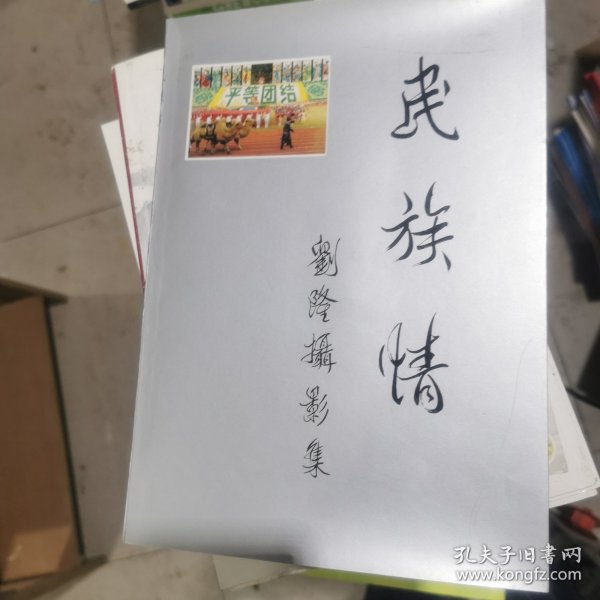 平等团结
民族情
劉隆攝影集
孔夫子旧书网
www.kongfz.com